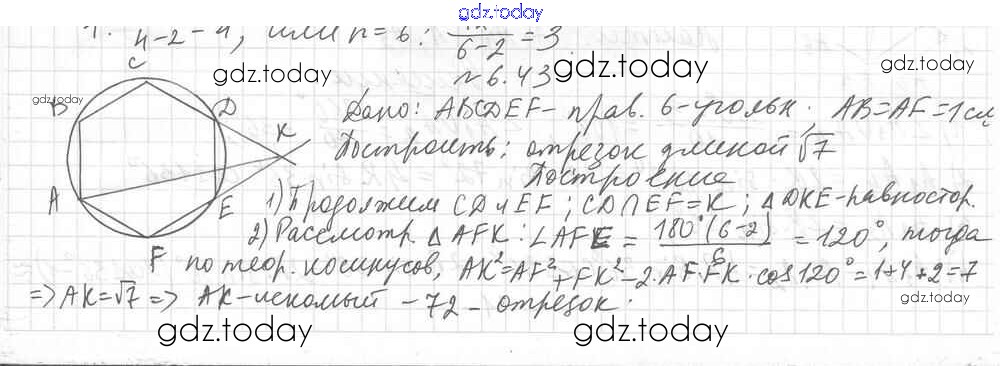 gdz.today
4-2-4, или n=6: 6-2 =3
C
gdz.today
№ 6.43
gdz.today
gdz.today
gdz.today
B
D
K
A
E
F
Дано: ABCDEF - прав. 6-угольн.; AB=AF=1см
Построить: отрезок длиной √7
Построение
1) Продолжим CD и EF; CD∩EF=K; △DKE-равностор.
2) Рассмотр. △AFK: ∠AFE = 180°(6-2)/6 = 120°, тогда
по теор. косинусов, AK²=AF²+FK²-2·AF·FK·cos120°=1+4+2=7
=> AK=√7 => AK-искомый -72- отрезок.
gdz.today
gdz.today
gdz.today